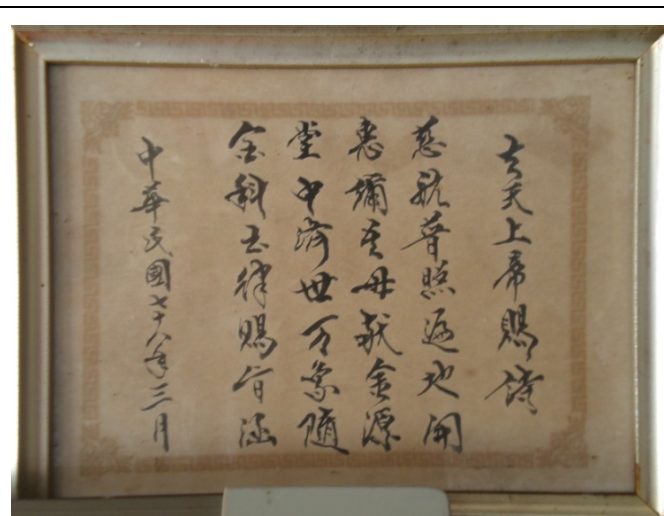 玄天上帝賜詩
慈航普照遍地開
惠彌玉母献金源
堂中济世万象隨
金科玉律賜旨涵
中華民國七十八年三月